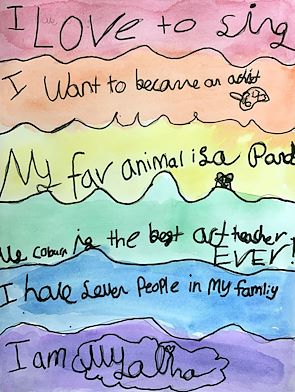 I LOVE to sing
I Want to became an artist
My fav animal is a Pand
coburn is the best art teacher
EVER!
I have seven People in My famliy
I am